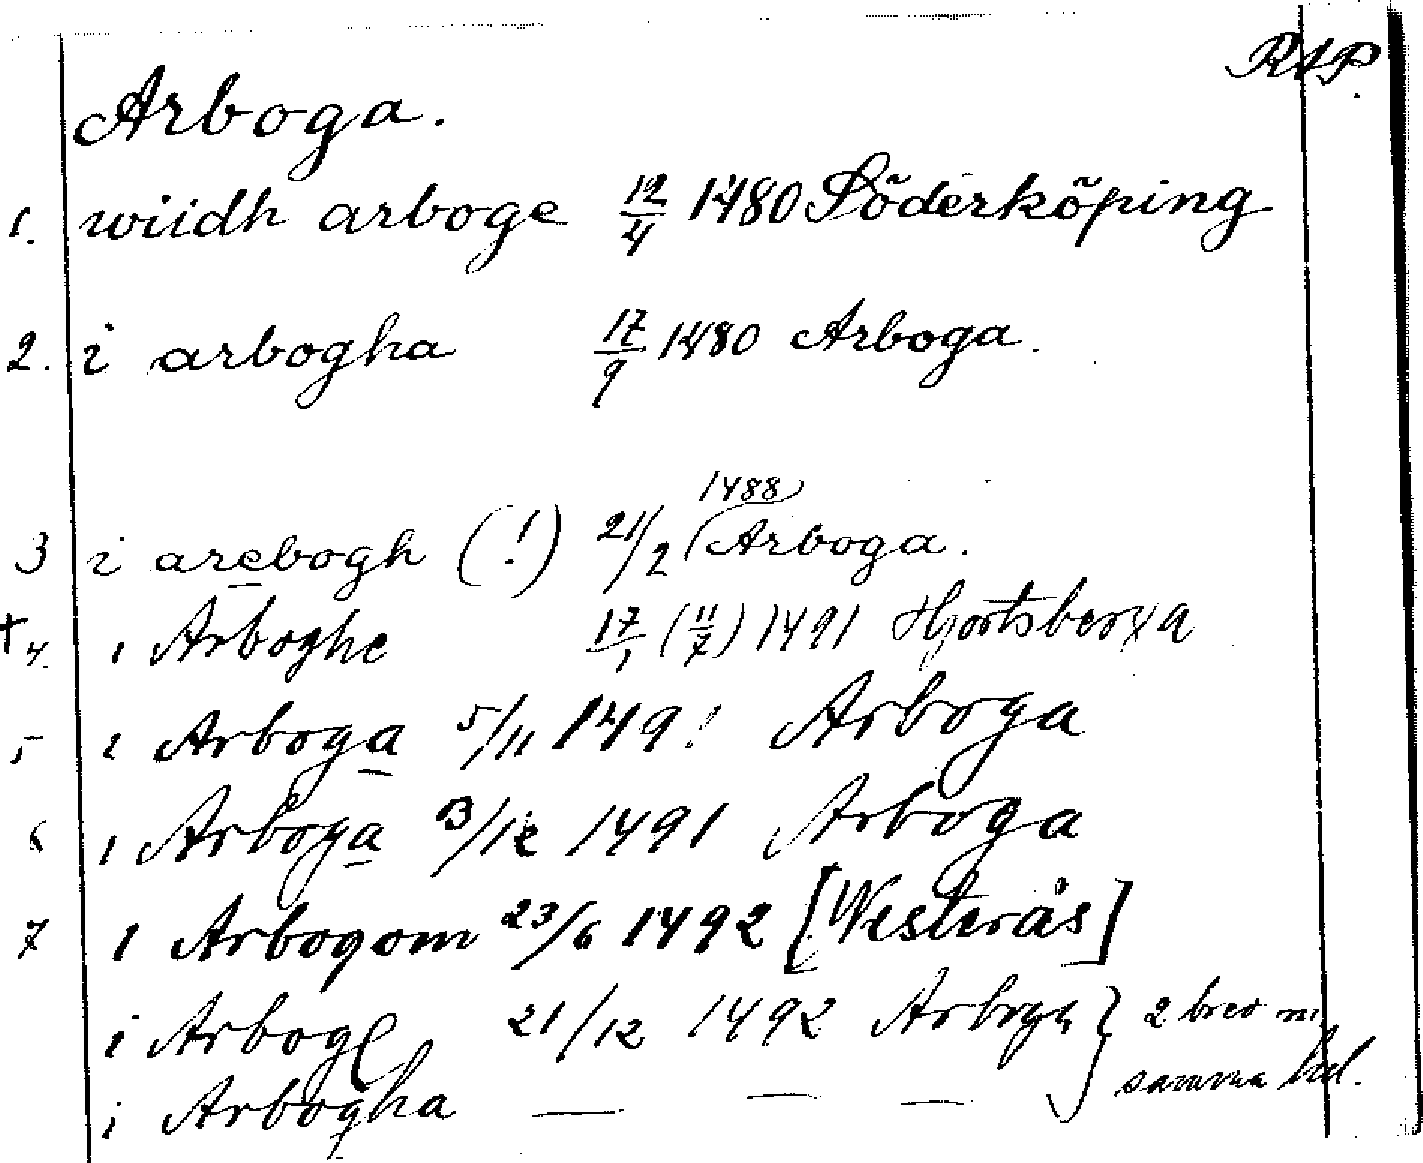 RAP.
Arboga.
1. wiidh arboge 12/4 1480 Söderköping
2. i arbogha 17/9 1480 Arboga.
1488
3 i arebogh (!) 21/2 Arboga.
+4. i Arboghe 17/1 (11/7) 1491 Hjortsberga
5 i Arboga 5/11 1491 Arboga
6 i Arboga 13/12 1491 Arboga
7 i Arbogom 23/6 1492 [Westerås]
i Arboge 21/12 1492 Arboga } 2 brev m
i Arbogha — — — samma dat.